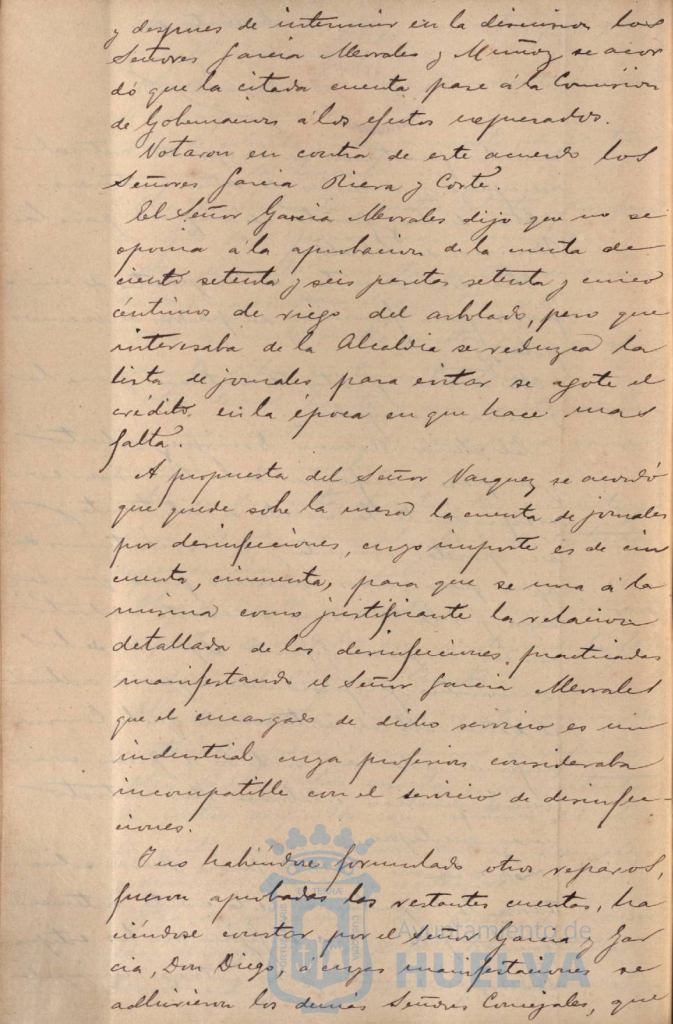 y despues de intervenir en la discusion los
Señores Garcia Morales y Muñoz se acor
dó que la citada cuenta pase á la Comision
de Gobernacion á los efectos expresados.
Votaron en contra de este acuerdo los
Señores Garcia Riera y Corté.
El Señor Garcia Morales dijo que no se
oponia á la aprobacion de la cuenta de
ciento setenta y seis pesetas setenta y cinco
céntimos de riego del arbolado, pero que
interesaba de la Alcaldia se reduzca la
lista de jornales para evitar se agote el
crédito en la época en que hace mas
falta.
A propuesta del Señor Vazquez se acordó
que quede sobre la mesa la cuenta de jornales
por desinfecciones, cuyo importe es de cin
cuenta, cincuenta, para que se una á la
misma como justificante la relacion
detallada de las desinfecciones practicadas
manifestando el Señor Garcia Morales
que el encargado de dicho servicio es un
industrial cuya profesion consideraba
incompatible con el servicio de desinfec-
ciones.
Y no habiéndose formulado otros reparos,
fueron aprobadas las restantes cuentas, ha
ciéndose constar por el Señor Garcia y Gar
cia, Don Diego, á cuyas manifestaciones se
adhirieron los demás Señores Concejales, que
Ayuntamiento de
HUELVA